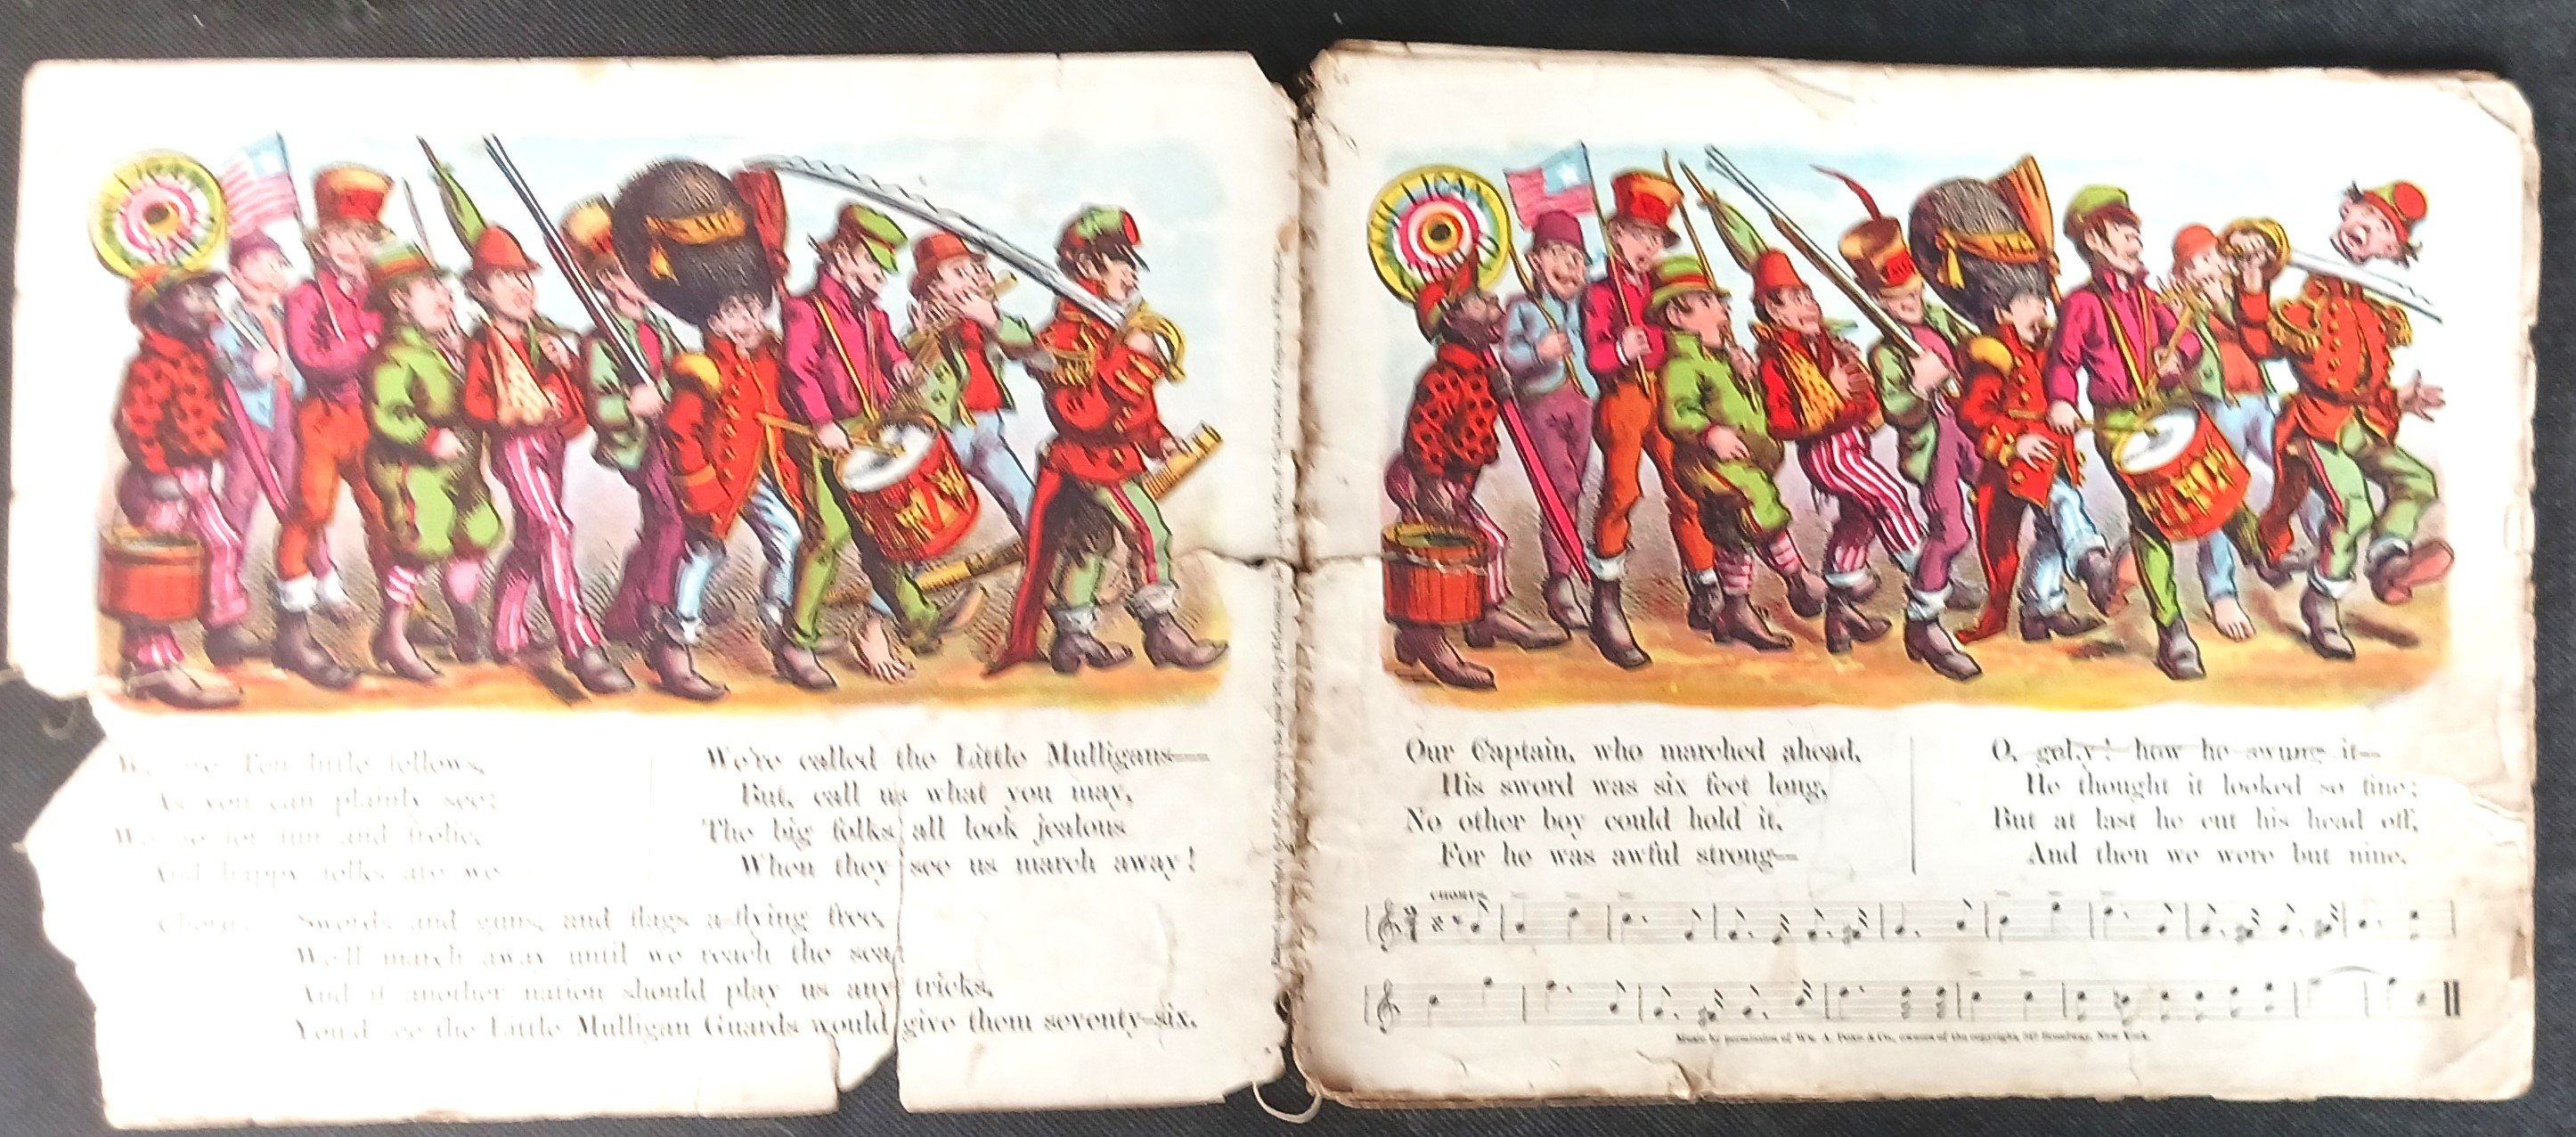 We are Ten little fellows,
As you can plainly see;
We're for fun and frolic,
And happy folks are we
We're called the Little Mulligans—
But, call us what you may,
The big folks all look jealous
When they see us march away!
Chorus. Swords and guns, and flags a-flying free,
We'll march away until we reach the sea;
And if another nation should play us any tricks,
You'd see the Little Mulligan Guards would give them seventy-six.
M.G.
MULLIGAN
M.G.
Our Captain, who marched ahead,
His sword was six feet long,
No other boy could hold it,
For he was awful strong—
O, golly! how he swung it—
He thought it looked so fine;
But at last he cut his head off,
And then we were but nine.
CHORUS.
Music by permission of Wm. A. Pond & Co., owners of the copyright, 547 Broadway, New York.